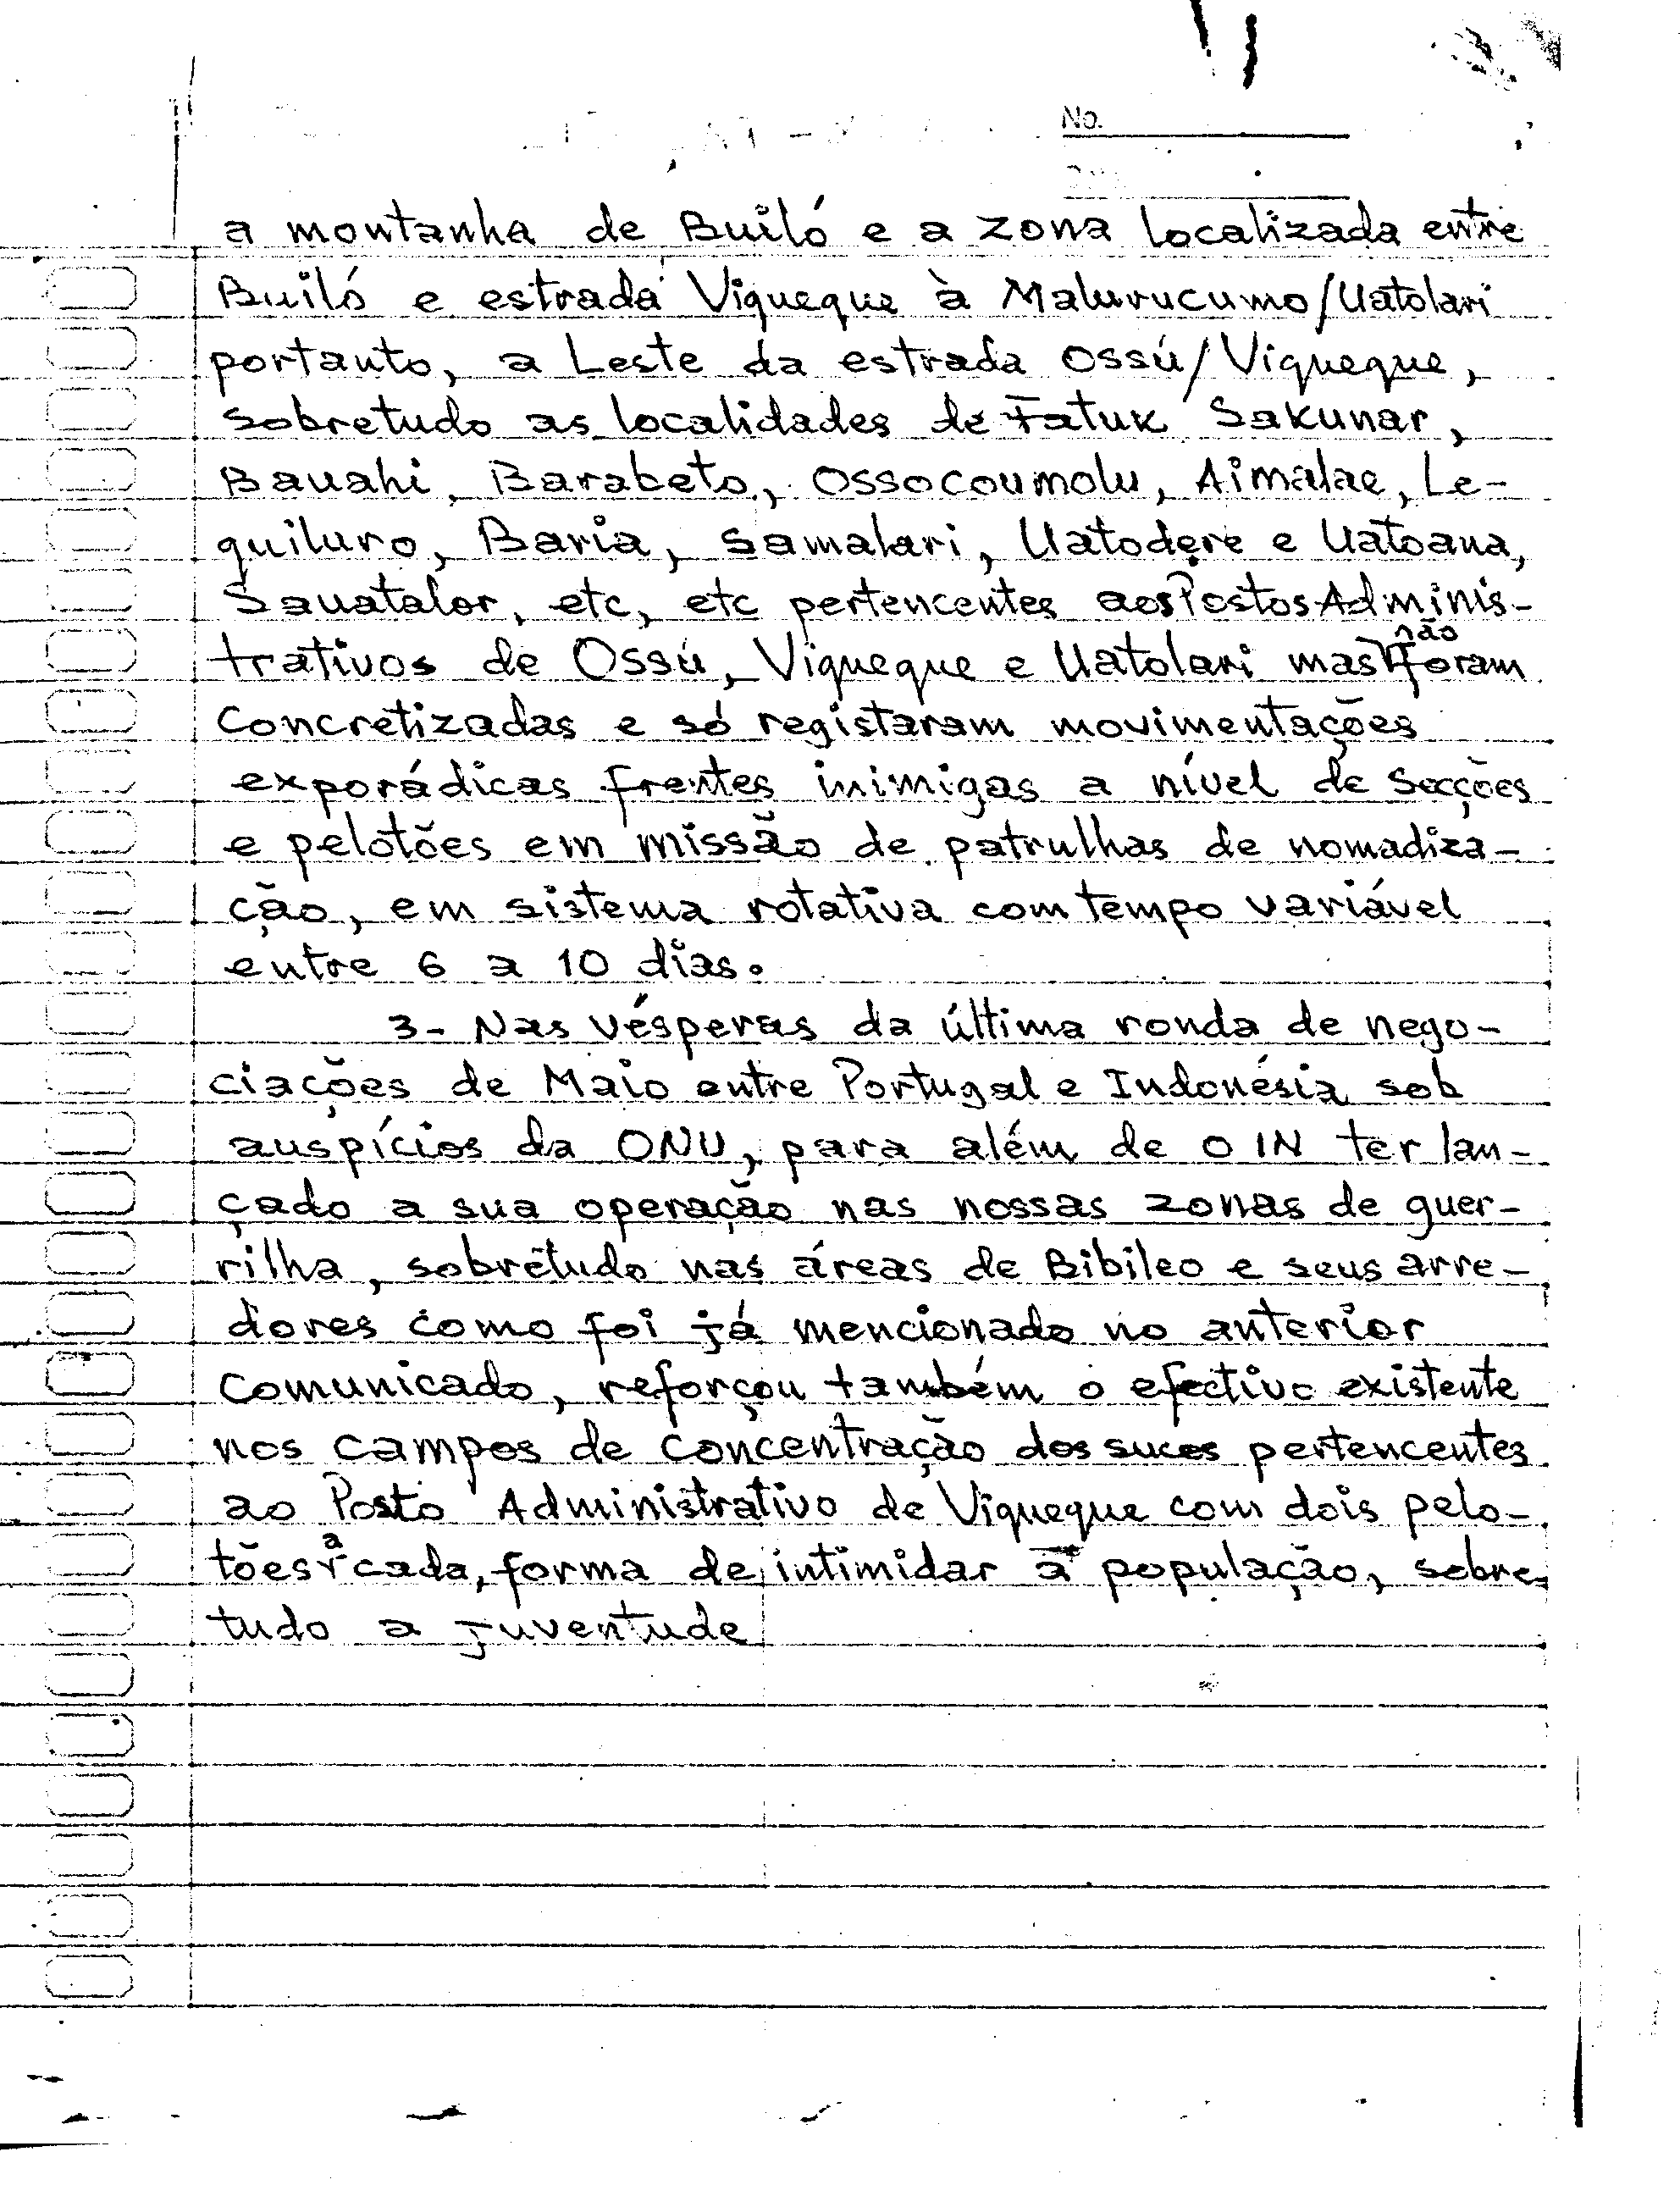 No.
a montanha de Builó e a zona localizada entre
Builó e estrada Viqueque à Maluvucumo/Uatolari
portanto, a Leste da estrada Ossú/Viqueque,
sobretudo as localidades de Fatuk Sakunar,
Bauahi, Barabeto, Ossocoumolu, Aimalae, Le-
quiluro, Baria, Samalari, Uatodere e Uatoana,
Sauatalor, etc, etc pertencentes aos Postos Adminis-
trativos de Ossú, Viqueque e Uatolari mas não foram
concretizadas e só registaram movimentações
exporádicas frentes inimigas a nível de Secções
e pelotões em missão de patrulhas de nomadiza-
ção, em sistema rotativa com tempo variável
entre 6 a 10 dias.
3- Nas vésperas da última ronda de nego-
ciações de Maio entre Portugal e Indonésia sob
auspícios da ONU, para além de o IN ter lan-
çado a sua operação nas nossas zonas de guer-
rilha, sobretudo nas áreas de Bibileo e seus arre-
dores como foi já mencionado no anterior
comunicado, reforçou também o efectivo existente
nos campos de concentração dos sucos pertencentes
ao Posto Administrativo de Viqueque com dois pelo-
tões a cada, forma de intimidar a população, sobre-
tudo a juventude